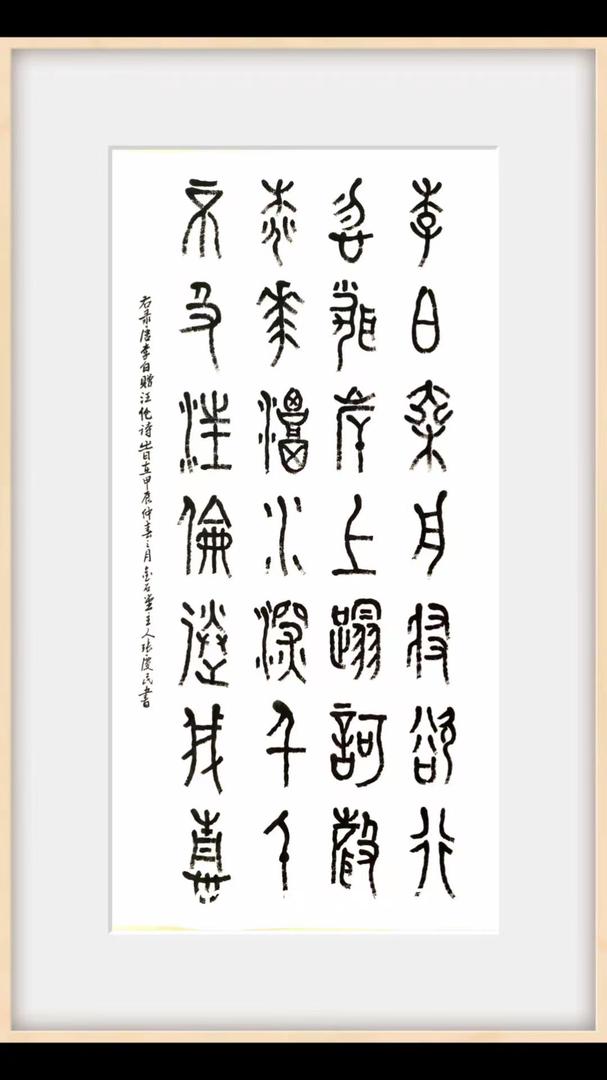 李白乘舟將欲行
忽聞岸上踏歌聲
桃花潭水深千尺
不及汪倫送我情
右录唐李白赠汪伦诗旹在甲辰仲春之月金石堂主人张俊民书